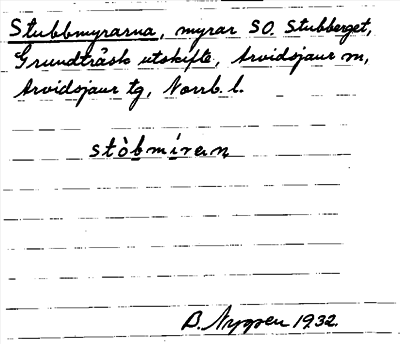 Stubbmyrarna, myrar SO. Stubberget,
Grundträsk utskifte, Arvidsjaur sn,
Arvidsjaur tg, Norrb. l.
stòbmíran
B. Nyppen 1932.